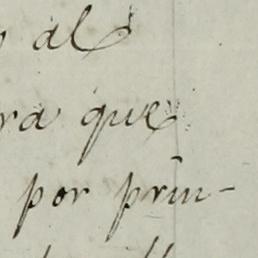 al
ra que
por prin-